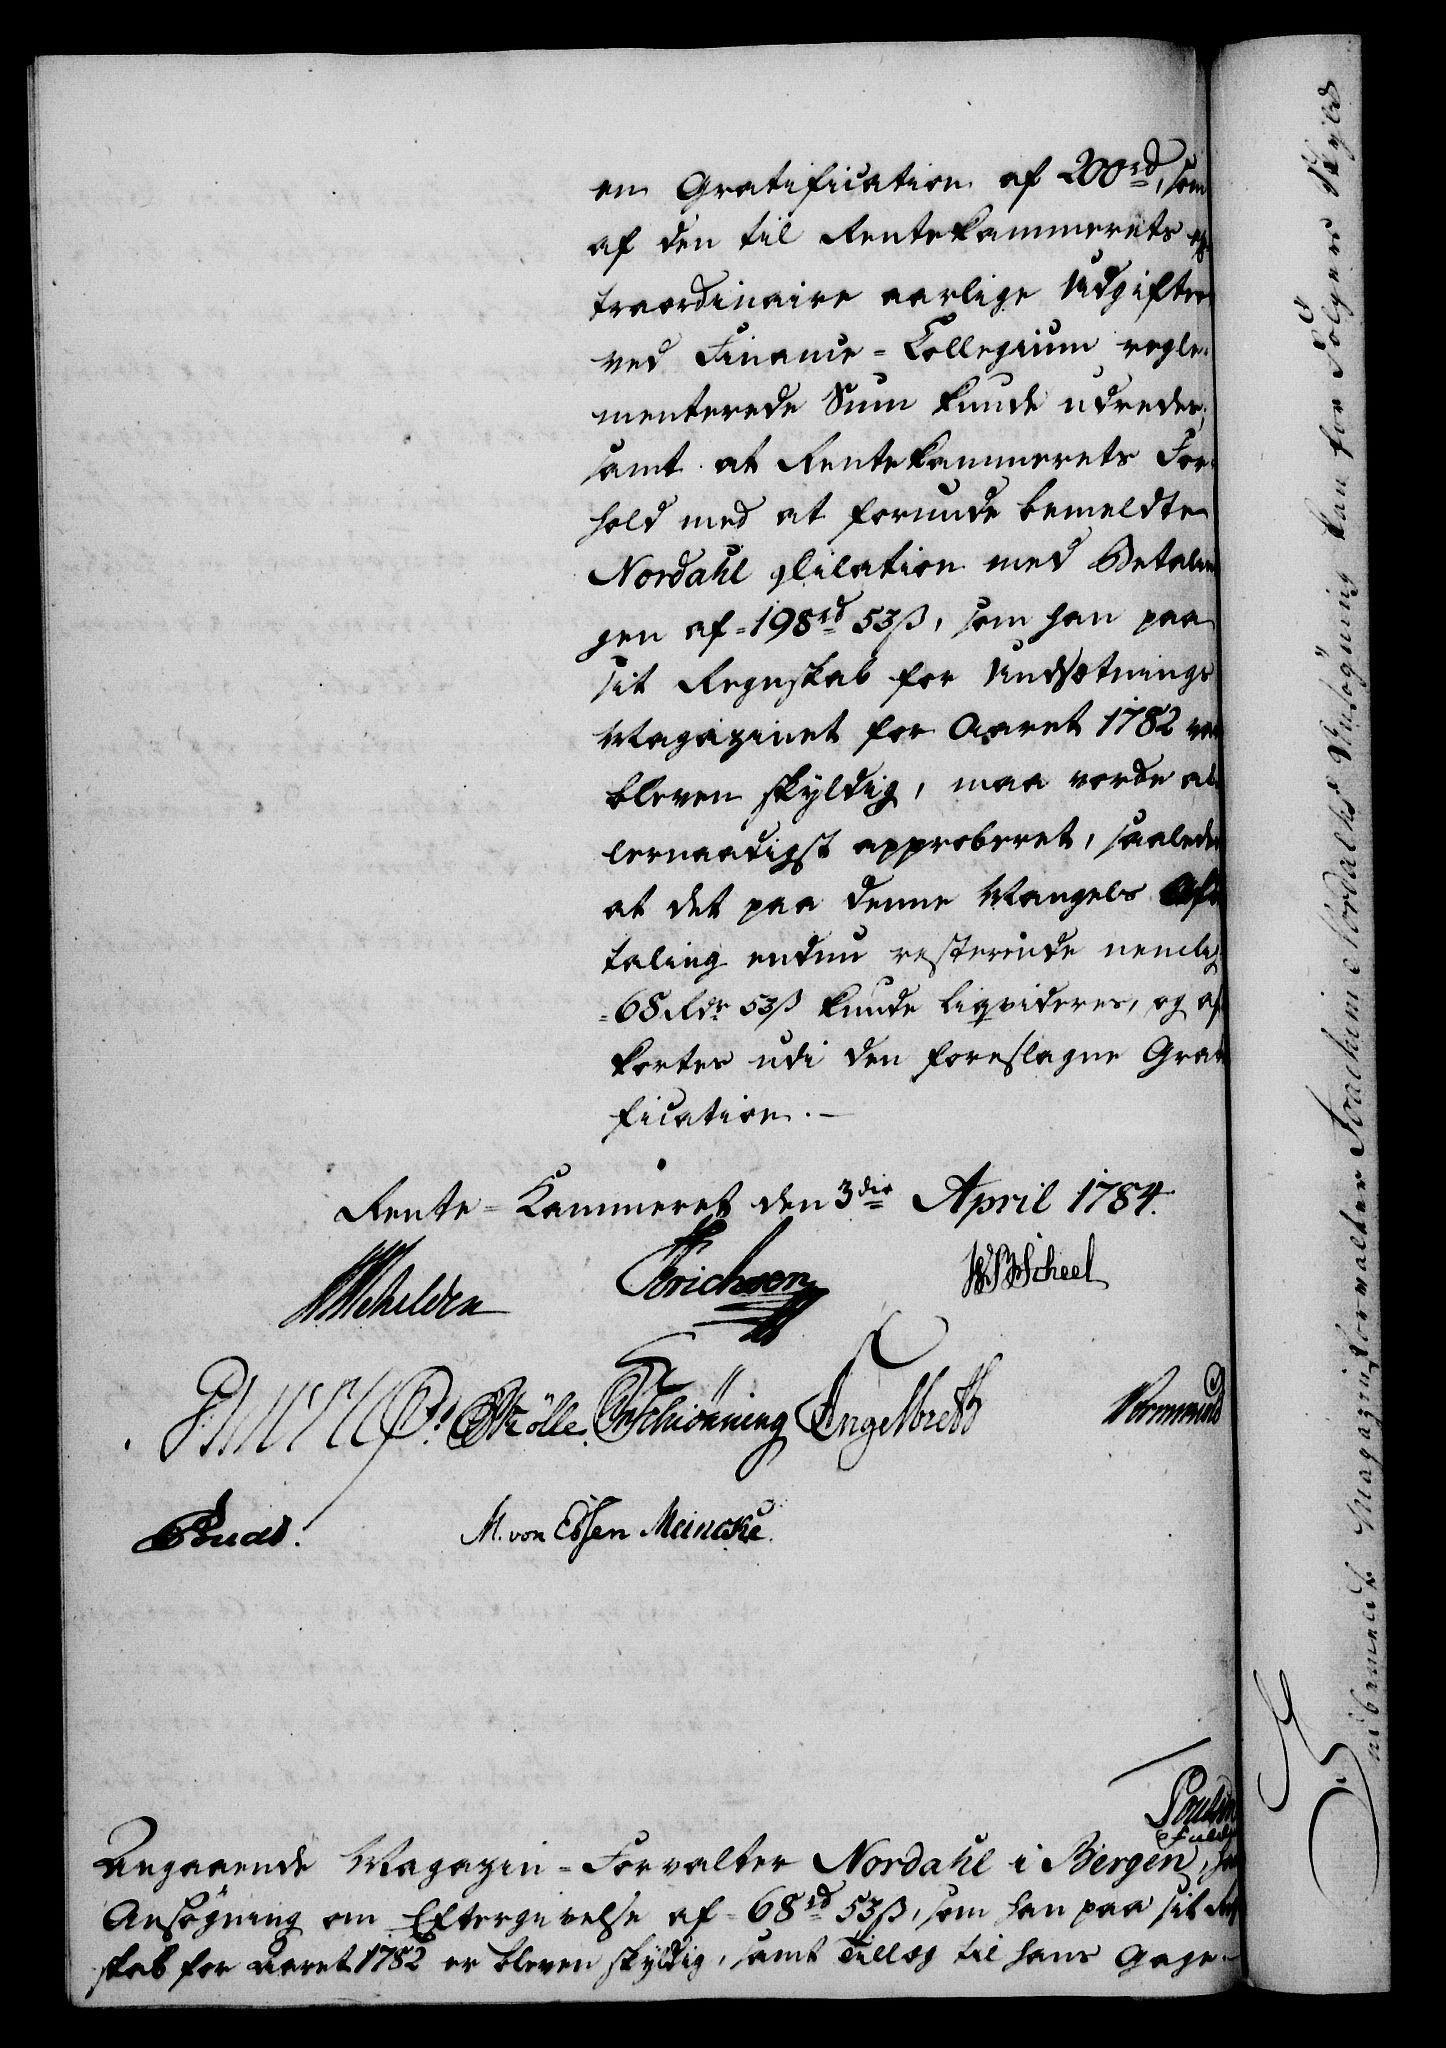 en Gratification af 200rd, som
af den til Rentekammerets ex
traordinaire aarlige Udgifter
ved Finance-Collegium regle-
menterede Sum kunde udredes,
samt at Rentekammerets For-
hold med at forunde bemeldte
Nordahl Dilation med Betalin
gen af 198rd 53ß, som han paa
sit Regnskab for Undsætnings
Magazinet for Aaret 1782 var
bleven skyldig, maa vorde al
lernaadigst approberet, saaledes
at det paa denne Mangels Afbe
taling endnu resterende nemlig
68 Rdr 53ß kunde liqvideres, og af
kortes udi den foreslagne Grati
fication.
Rente-Kammeret den 3die April 1784.
Erichsen Scheel
Mölle. Schiönning Engelbreth Wormund
M. von Essen Meincke.
Angaaende Magazin-Forvalter Nordahl i Bergen, hans
Ansøgning om Eftergivelse af 68rd 53ß, som han paa sit Regn
skab for Aaret 1782 er bleven skyldig, samt Tillæg til hans Gage
Magazinforvalter Joachim Nordahls Ansögning kan for Fölgers Skyld